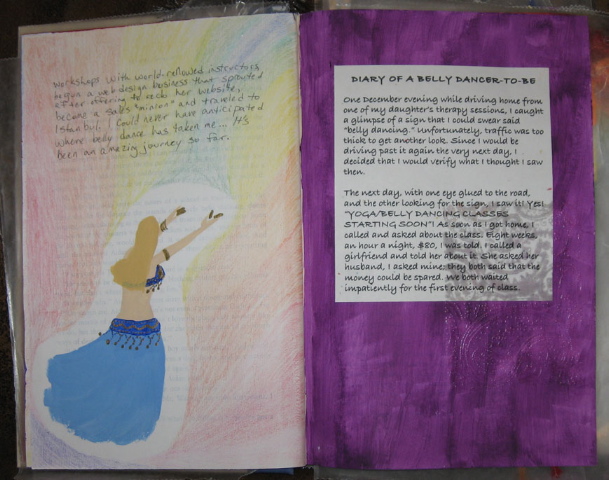 workshops with world-renowned instructors,
begun a web design business that sprouted
after offering to redo her website,
become a Sali's "minion" and traveled to
Istanbul! I could never have anticipated
where belly dance has taken me... It's
been an amazing journey so far.
DIARY OF A BELLY DANCER-TO-BE
One December evening while driving home from
one of my daughter's therapy sessions, I caught
a glimpse of a sign that I could swear said
"belly dancing." Unfortunately, traffic was too
thick to get another look. Since I would be
driving past it again the very next day, I
decided that I would verify what I thought I saw
then.
The next day, with one eye glued to the road,
and the other looking for the sign, I saw it! Yes!
"YOGA/BELLY DANCING CLASSES
STARTING SOON"! As soon as I got home, I
called and asked about the class. Eight weeks,
an hour a night, $80, I was told. I called a
girlfriend and told her about it. She asked her
husband, I asked mine; they both said that the
money could be spared. We both waited
impatiently for the first evening of class.